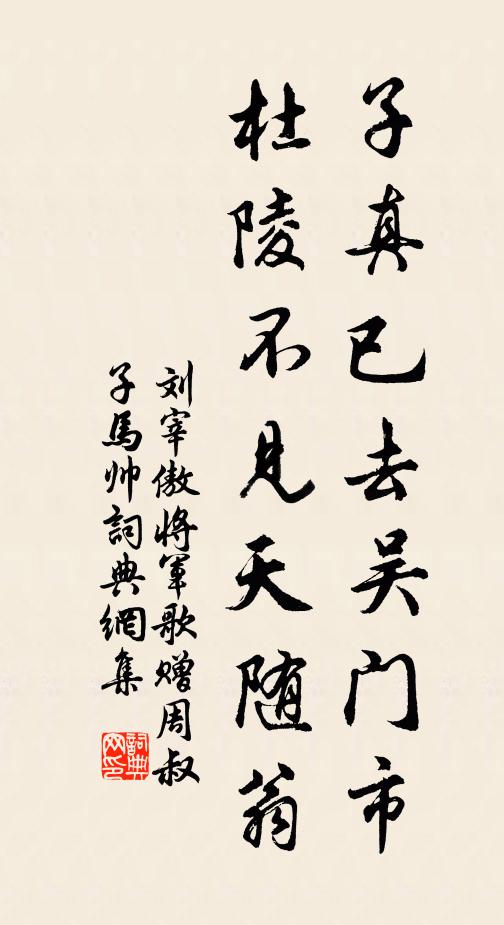 子真已去吴门市
杜陵不见天随翁
刘宰傲将軍歌赠周叔
子馬帅詞典網集
詞典网印